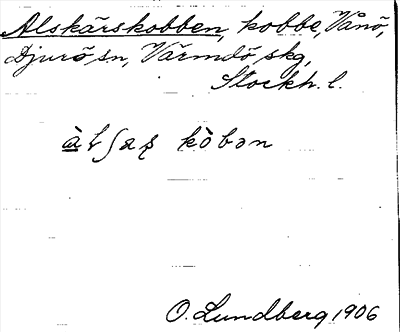 Alskärskobben, kobbe, Vånö,
Djurö sn, Värmdö skg,
Stockh. l.
kòbən
O. Lundberg 1906